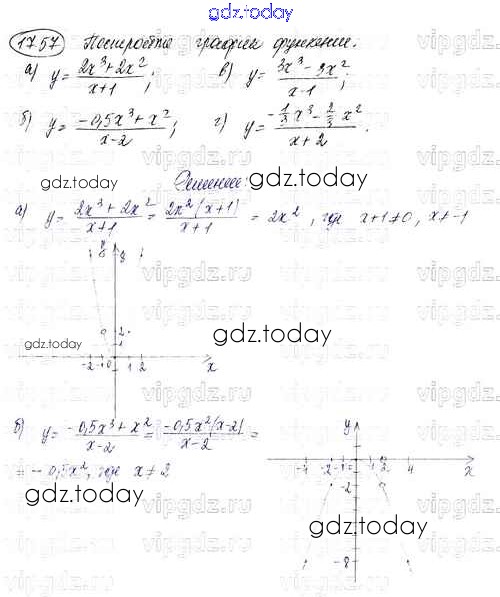 gdz.today
1757 Постройте графики функции.
а) y = (2x³+2x²)/(x+1); в) y = (3x³-3x²)/(x-1);
б) y = (-0,5x³+x²)/(x-2); г) y = (-1/3 x³ - 2/3 x²)/(x+2).
gdz.today
Решение:
gdz.today
а) y = (2x³+2x²)/(x+1) = (2x²(x+1))/(x+1) = 2x², где x+1≠0, x≠-1
y
8
2
1
gdz.today
gdz.today
-2 -1 0 1 2 x
б) y = (-0,5x³+x²)/(x-2) = (-0,5x²(x-2))/(x-2) =
= -0,5x², где x≠2
y
-4 -2 -1 1 2 4 x
-2
gdz.today
gdz.today
-8
vipgdz.ru